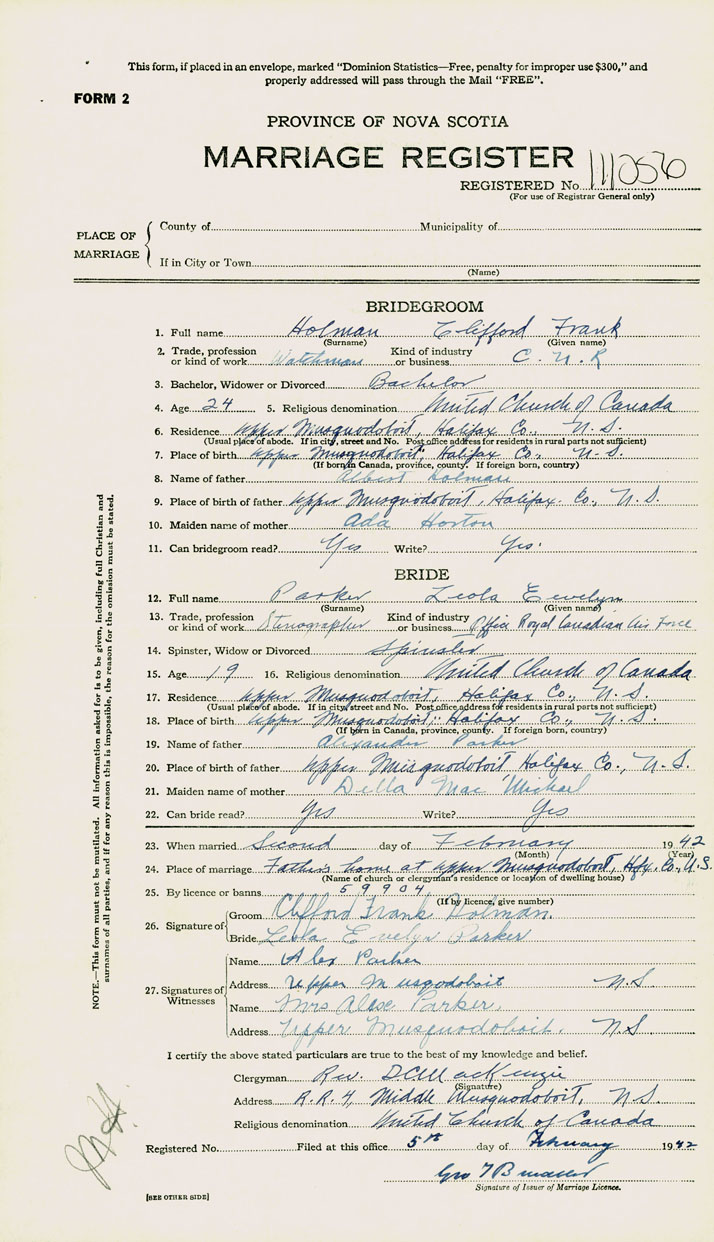 This form, if placed in an envelope, marked "Dominion Statistics—Free, penalty for improper use $300," and
properly addressed will pass through the Mail "FREE".
FORM 2
PROVINCE OF NOVA SCOTIA
MARRIAGE REGISTER
REGISTERED No.
(For use of Registrar General only)
PLACE OF MARRIAGE
County of Municipality of
If in City or Town
(Name)
BRIDEGROOM
1. Full name Holman Clifford Frank
(Surname) (Given name)
2. Trade, profession or kind of work Watchman Kind of industry or business C. N. R
3. Bachelor, Widower or Divorced Bachelor
4. Age 24 5. Religious denomination United Church of Canada
6. Residence Upper Musquodoboit, Halifax Co., N. S.
(Usual place of abode. If in city, street and No. Post office address for residents in rural parts not sufficient)
7. Place of birth Upper Musquodoboit, Halifax Co., N. S.
(If born in Canada, province, county. If foreign born, country)
8. Name of father Albert Holman
9. Place of birth of father Upper Musquodoboit, Halifax. Co., N. S.
10. Maiden name of mother Ada Horton
11. Can bridegroom read? Yes Write? Yes.
BRIDE
12. Full name Parker Leola Evelyn
(Surname) (Given name)
13. Trade, profession or kind of work Stenographer Kind of industry or business Office Royal Canadian Air Force
14. Spinster, Widow or Divorced Spinster
15. Age 19 16. Religious denomination United Church of Canada
17. Residence Upper Musquodoboit, Halifax Co., N. S.
(Usual place of abode. If in city, street and No. Post office address for residents in rural parts not sufficient)
18. Place of birth Upper Musquodoboit, Halifax Co., N. S.
(If born in Canada, province, county. If foreign born, country)
19. Name of father Alexander Parker
20. Place of birth of father Upper Musquodoboit, Halifax Co., N. S.
21. Maiden name of mother Della Mac Michael
22. Can bride read? Yes Write? Yes
23. When married Second day of February 1942
(Month) (Year)
24. Place of marriage Father's home at Upper Musquodoboit, Hfx. Co., N.S.
(Name of church or clergyman's residence or location of dwelling house)
25. By licence or banns 59904
(If by licence, give number)
26. Signature of
Groom Clifford Frank Holman.
Bride Leola Evelyn Parker
27. Signatures of Witnesses
Name Alex Parker
Address Upper Musquodoboit N.S
Name Mrs Alex Parker.
Address Upper Musquodoboit. N.S.
I certify the above stated particulars are true to the best of my knowledge and belief.
Clergyman Rev. D.C. MacKenzie
(Signature)
Address R.R. 4, Middle Musquodoboit, N.S.
Religious denomination United Church of Canada
Registered No. Filed at this office 5th day of February 1942
Signature of Issuer of Marriage Licence.
[SEE OTHER SIDE]
NOTE.—This form must not be mutilated. All information asked for is to be given, including full Christian and
surnames of all parties, and if for any reason this is impossible, the reason for the omission must be stated.